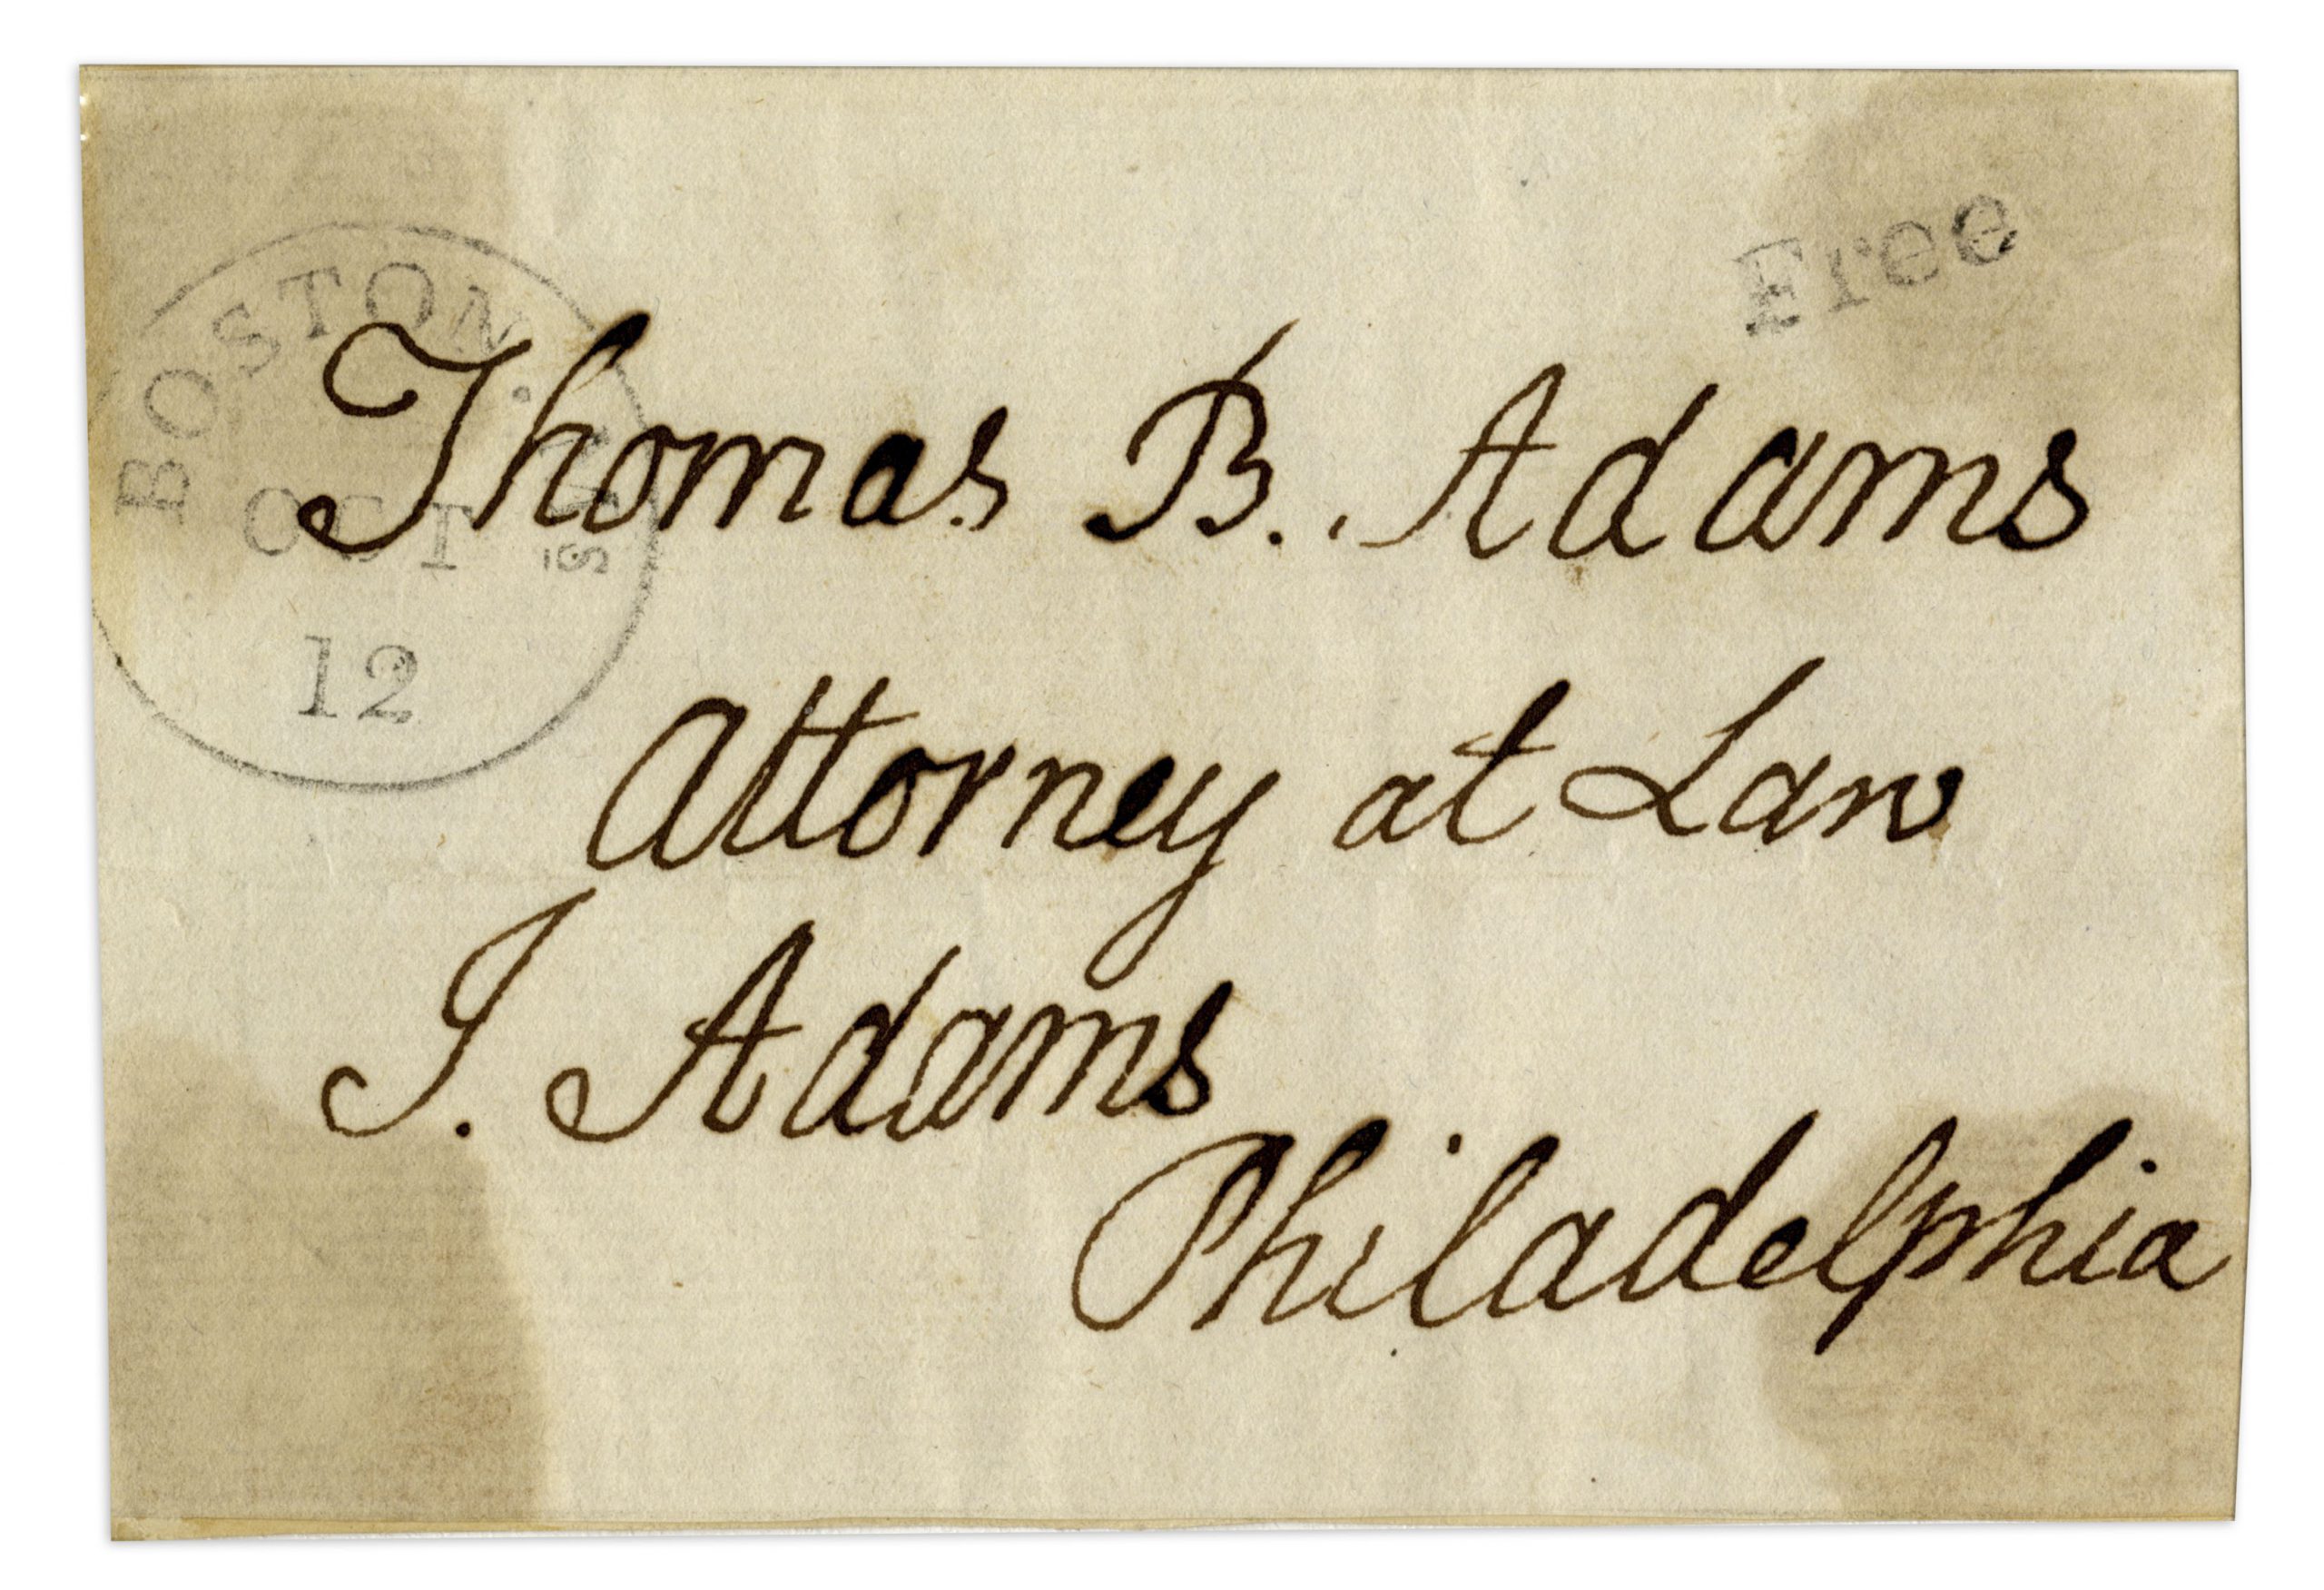 Free
BOSTON.
OCT
12
Thomas B. Adams
Attorney at Law
J. Adams
Philadelphia